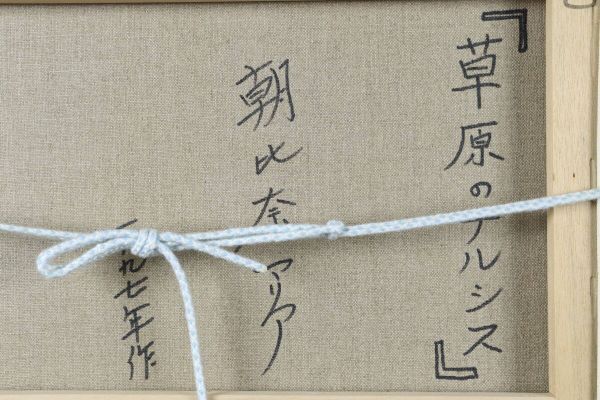 『草原のナルシス』
朝比奈マリア
一九七年作